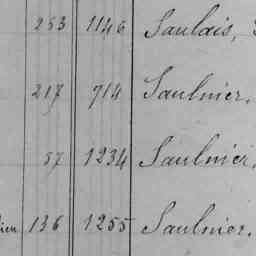 253 1146 Saulais,
217 714 Saulnier.
57 1234 Saulnier.
136 1255 Saulnier.